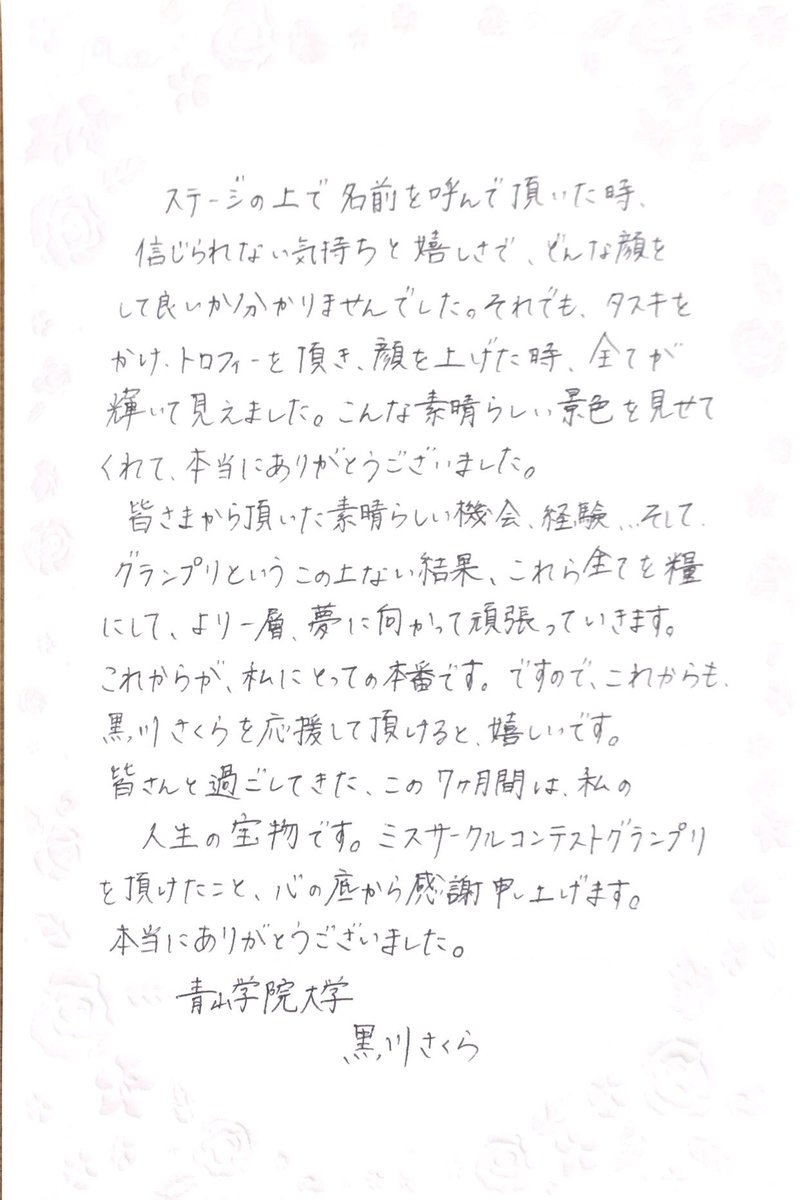 ステージの上で名前を呼んで頂いた時、
信じられない気持ちと嬉しさで、どんな顔を
して良いか分かりませんでした。それでも、タスキを
かけ、トロフィーを頂き、顔を上げた時、全てが
輝いて見えました。こんな素晴らしい景色を見せて
くれて、本当にありがとうございました。
皆さまから頂いた素晴らしい機会、経験、、そして、
グランプリというこの上ない結果、これら全てを糧
にして、より一層、夢に向かって頑張っていきます。
これからが、私にとっての本番です。ですので、これからも、
黒川さくらを応援して頂けると、嬉しいです。
皆さんと過ごしてきた、この7ヶ月間は、私の
人生の宝物です。ミスサークルコンテストグランプリ
を頂けたこと、心の底から感謝申し上げます。
本当にありがとうございました。
青山学院大学
黒川さくら